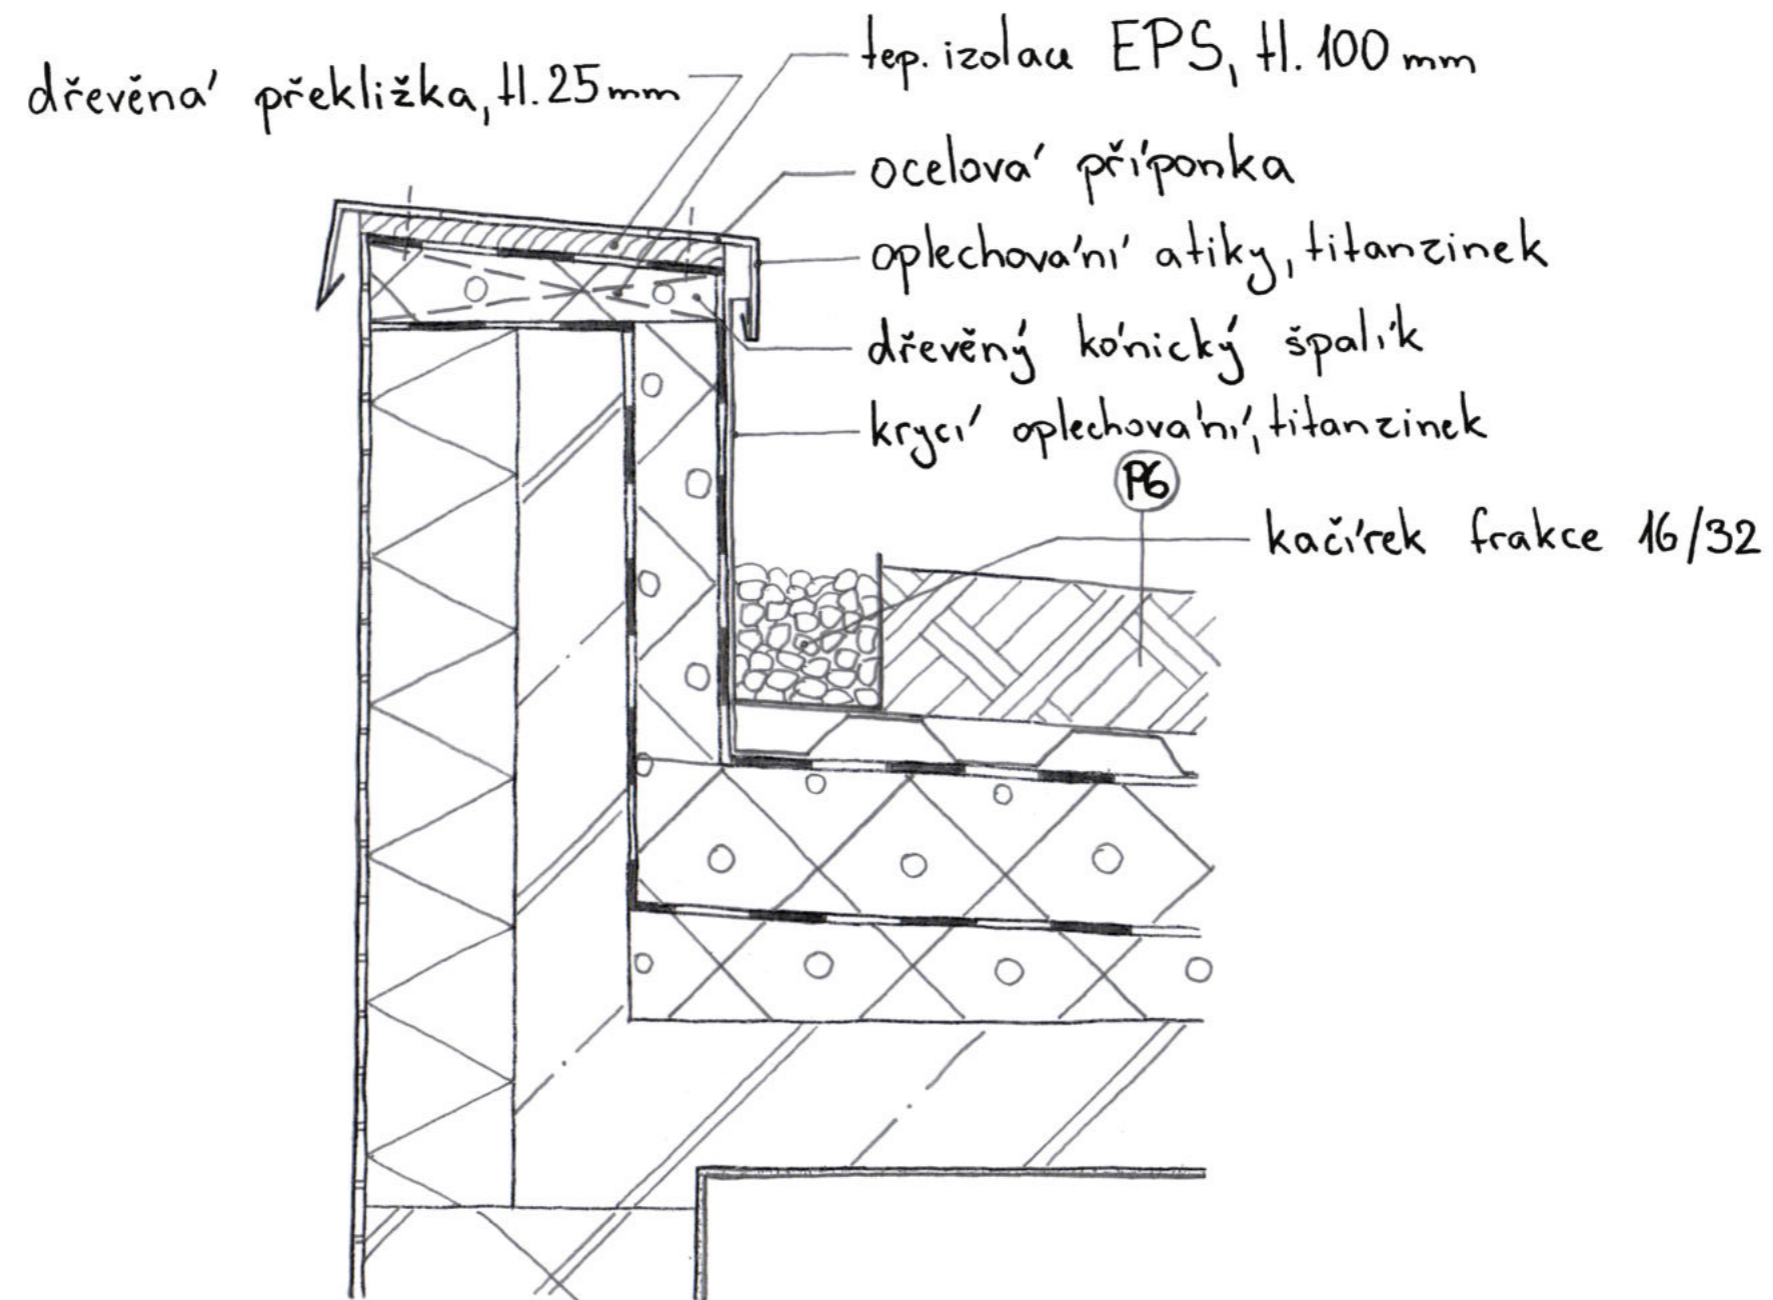 dřevěná překližka, tl. 25 mm
tep. izolace EPS, tl. 100 mm
ocelová příponka
oplechování atiky, titanzinek
dřevěný kónický špalík
krycí oplechování, titanzinek
P6
kačírek frakce 16/32